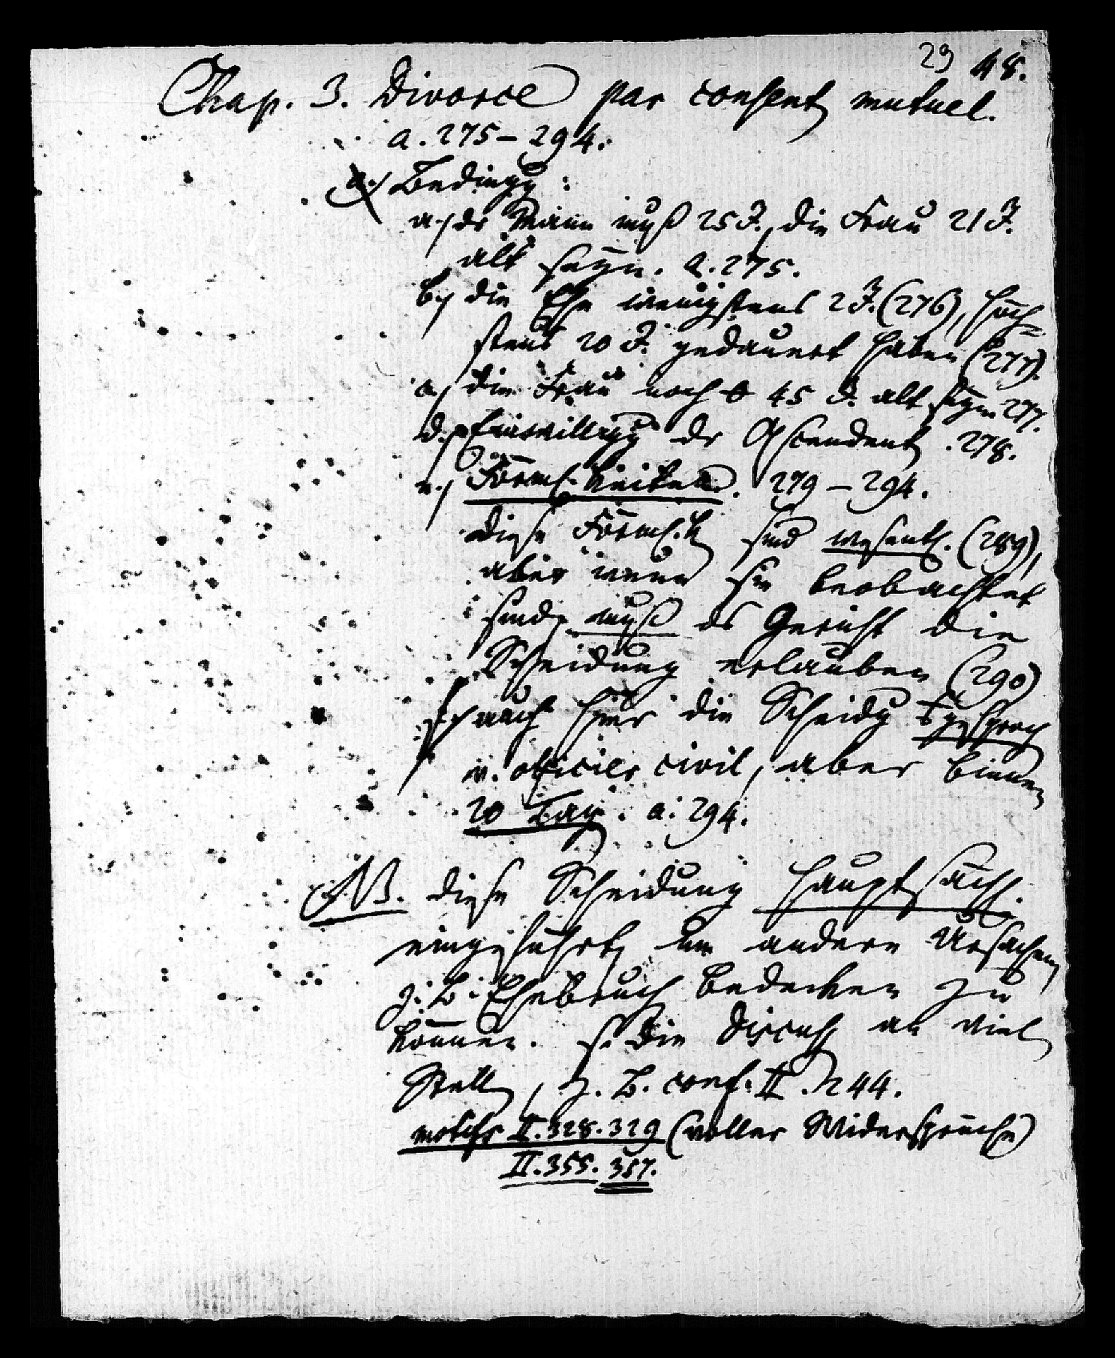 29 48.
Chap. 3. Divorce par consent. mutuel.
a. 275–294.
a.) Beding.:
a.) der Mann muß 25 J., die Frau 21 J.
alt seyn. a. 275.
b.) die Ehe wenigstens 2 J. (276), höch=
stens 20 J. gedauert haben (277).
c.) die Frau noch 45 J. alt seyn 277.
d.) Einwilligg der Ascendent. 278.
e.) Förmlichkeiten. 279–294.
diese Förmlk. sind wesentl. (289),
aber wenn sie beobachtet
sind, muß das Gericht die
Scheidung erlauben (290)
f.) auch hier die Scheidg gesproch
v. officier civil, aber binnen
20 Tag. a. 294.
NB. diese Scheidung hauptsächl.
eingeführt, um andere Ursachen,
z. B. Ehebruch bedecken zu
können. s. die Discuss. an viel
Stell, z. B. conf. II. 244.
motifs II. 328. 329 (voller Widersprüche)
II. 355. 357.